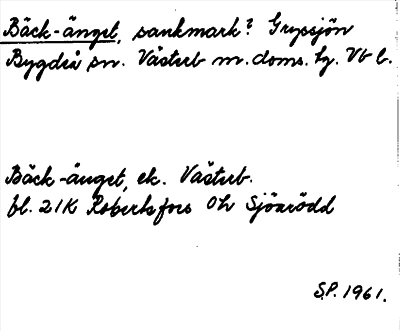 Bäck-änget, sankmark? Gryssjön
Bygdeå sn. Västerb m. doms. hg. Vb l.
Bäck-änget, ek. Västerb.
bl. 21K Robertsfors Oh Sjönrödd
S.P. 1961.